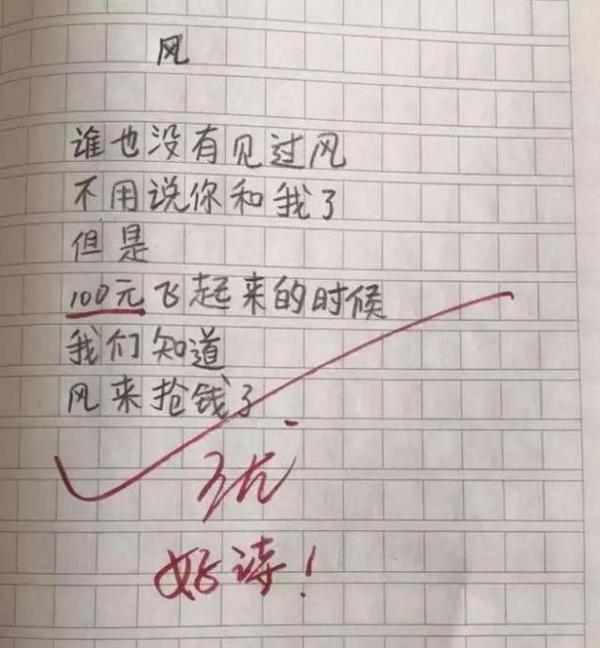 风
谁也没有见过风
不用说你和我了
但是
100元飞起来的时候
我们知道
风来抢钱了
优
好诗!